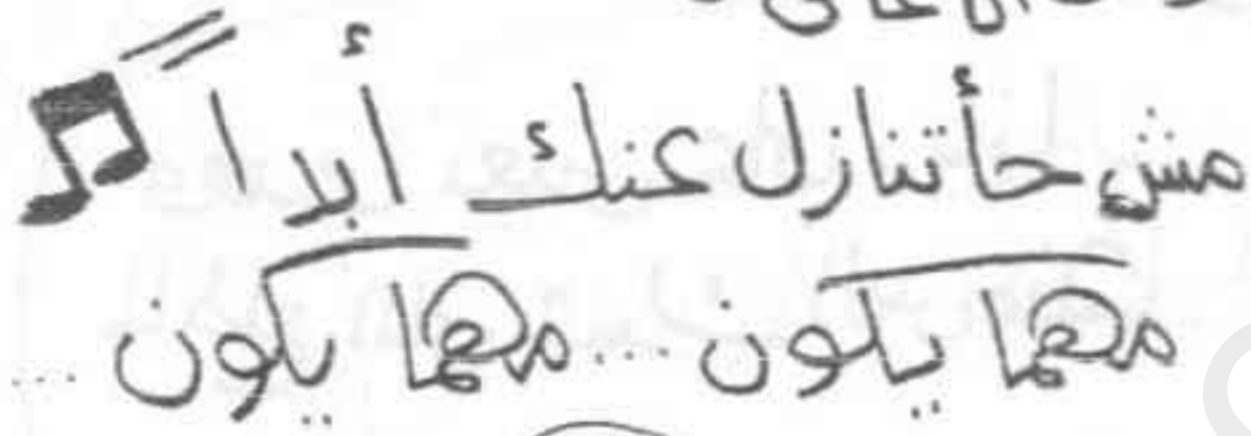 مش حأتنازل عنك أبدا
مهما يكون ... مهما يكون ...